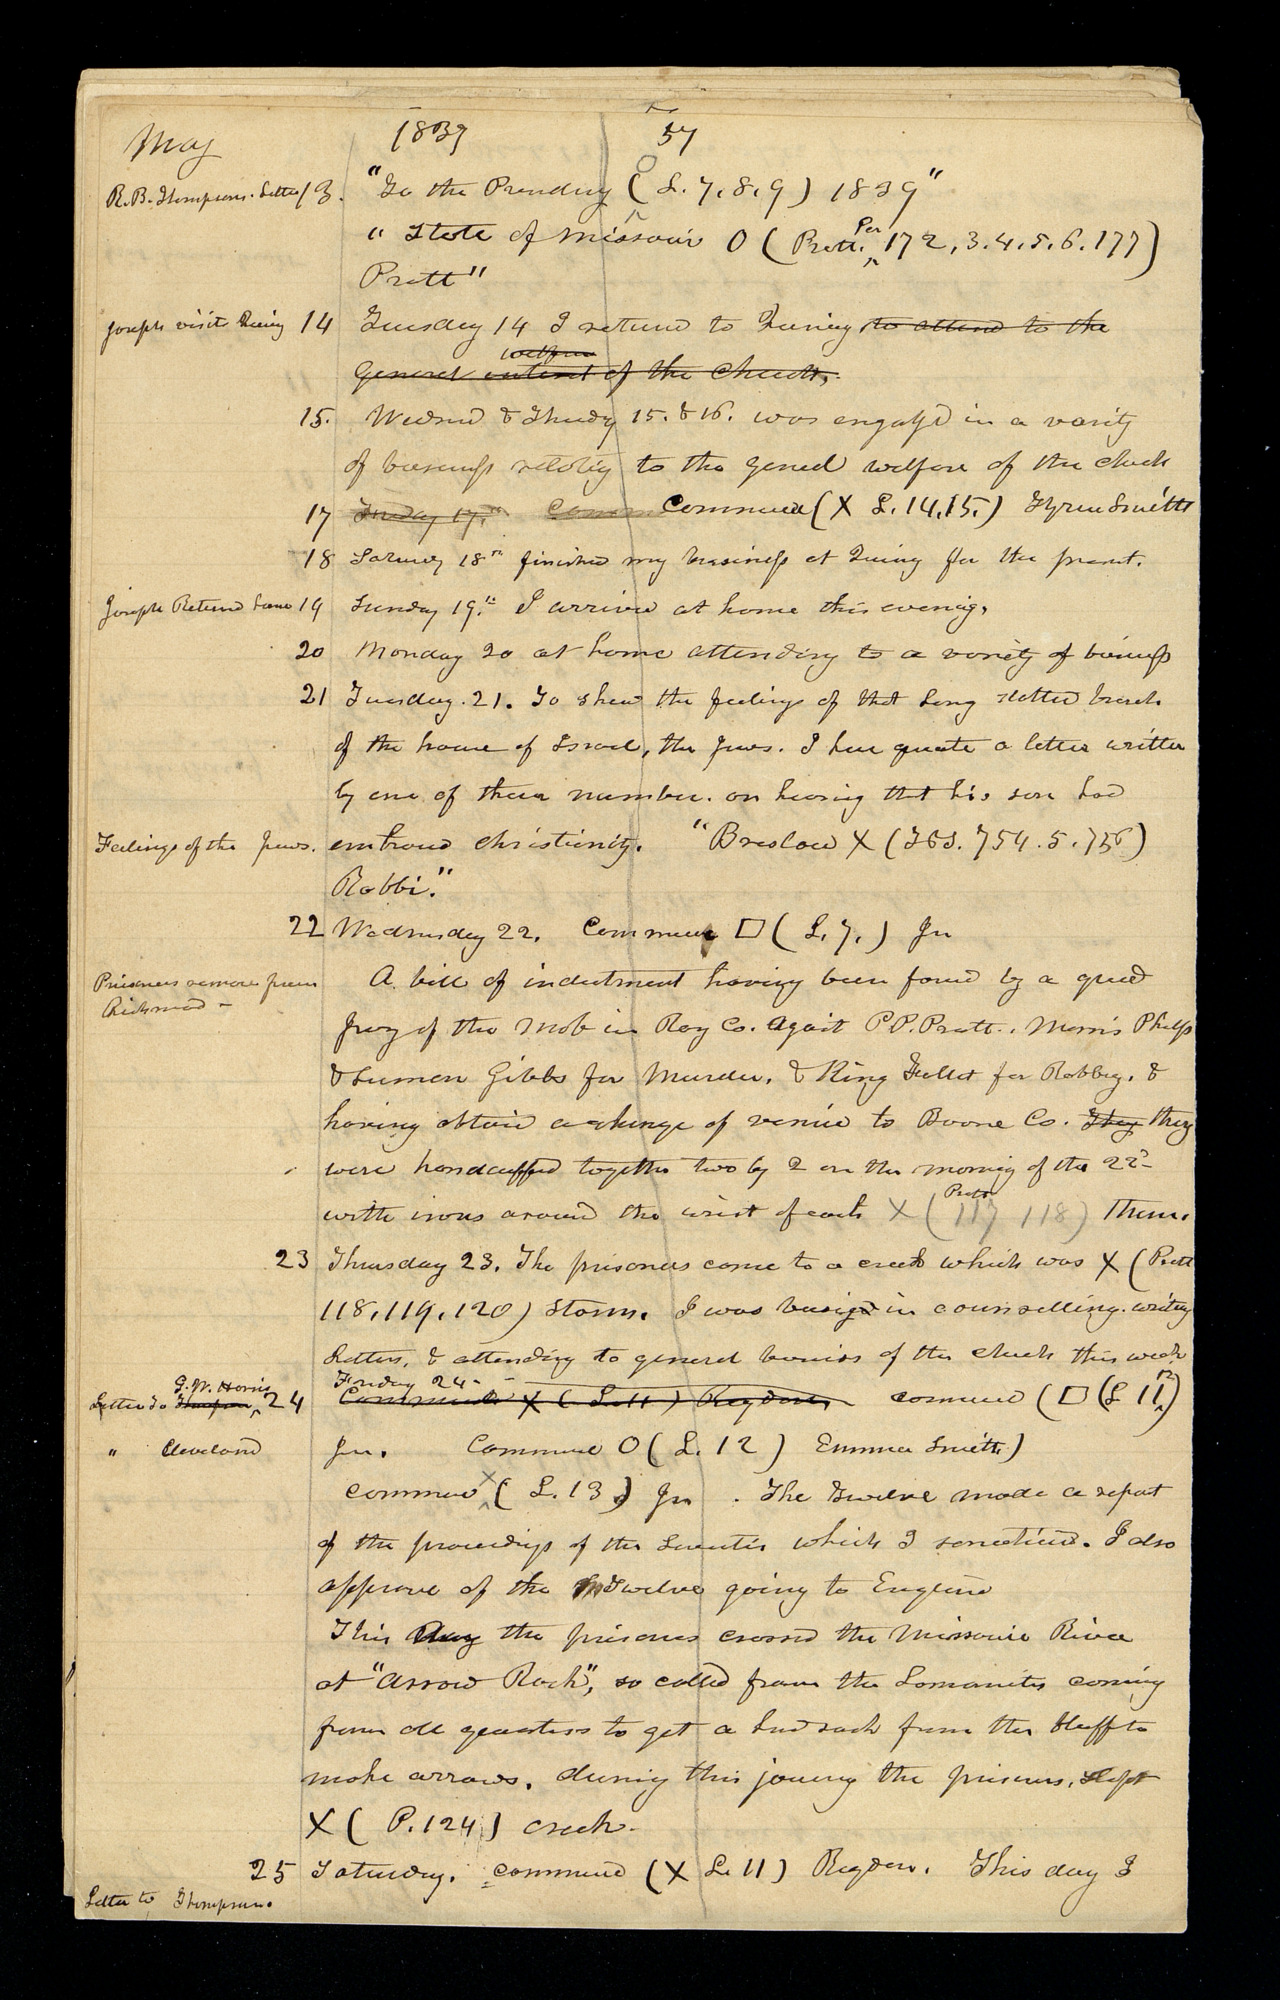 May 1839 57
R. B. Thompsons Letter 13. "To the Presidency (O L. 7, 8, 9) 1839"
" State of Missouri O (Pratt. Per 172, 3. 4. 5. 6. 177)
Pratt"
Joseph visits Quincy 14 Tuesday 14 I returned to Quincy, to attend to the
general interest welfare of the Church,
15. Wednsd & Thursdy 15. & 16. was engaged in a varity
of business relating to the general welfare of the church
17 Friday 17th Comm Commence (X L. 14, 15.) Hyrum Smith
18 Saturdy 18th finished my business at Quincy for the present.
Joseph Returnd home 19 Sunday 19th I arrived at home this evening,
20 Monday 20 at home attending to a variety of business
21 Tuesday. 21. To shew the feelings of that long scatterd branch
of the house of Israel, the Jews. I here quote a letter written
by one of their number. on hearing that his son had
Feelings of the Jews. embraced christianity. "Breslau X (T&S. 754. 5. 756)
Rabbi."
22 Wednesday 22. Commence □ (L. 7.) Jr
Prisoners remove from A bill of indictment having been found by a grand
Richmond - Jury of the Mob in Ray Co. against P P. Pratt., Morris Phelps
& Luman Gibbs for Murder, & King Follet for Robbery, &
having obtaind a change of venue to Boone Co. They they
were handcuffed together two by 2 on the morning of the 22d
with irons around the wrist of each X (Pratt 117 118) them.
23 Thursday 23. The prisoners came to a creek which was X (Pratt
118, 119, 120) storm. I was busiged in counselling. writing
letters, & attending to general business of the church this week
Letter to Thompson, G. W. Harris 24 Friday 24- Commence X (L. 11) Rigdon, commence (□ (L 11)
" Cleveland Jr. Commence O (L. 12) Emma Smith)
commence X (L. 13,) Jr . The Twelve made a report
of the proceedings of the Seventies which I sanctiond. I also
approve of the Twelve going to England
This Day the prisoners crossed the Missouri River
at "Arrow Rock", so called from the Lamanites coming
from all quarters to get a hard rock from the bluff to
make arrows. during this journey the prisoners, slept
X (P. 124) creek.
25 Saturday. commence (X L. 11) Rigdon. This day I
Letter to Thompson.